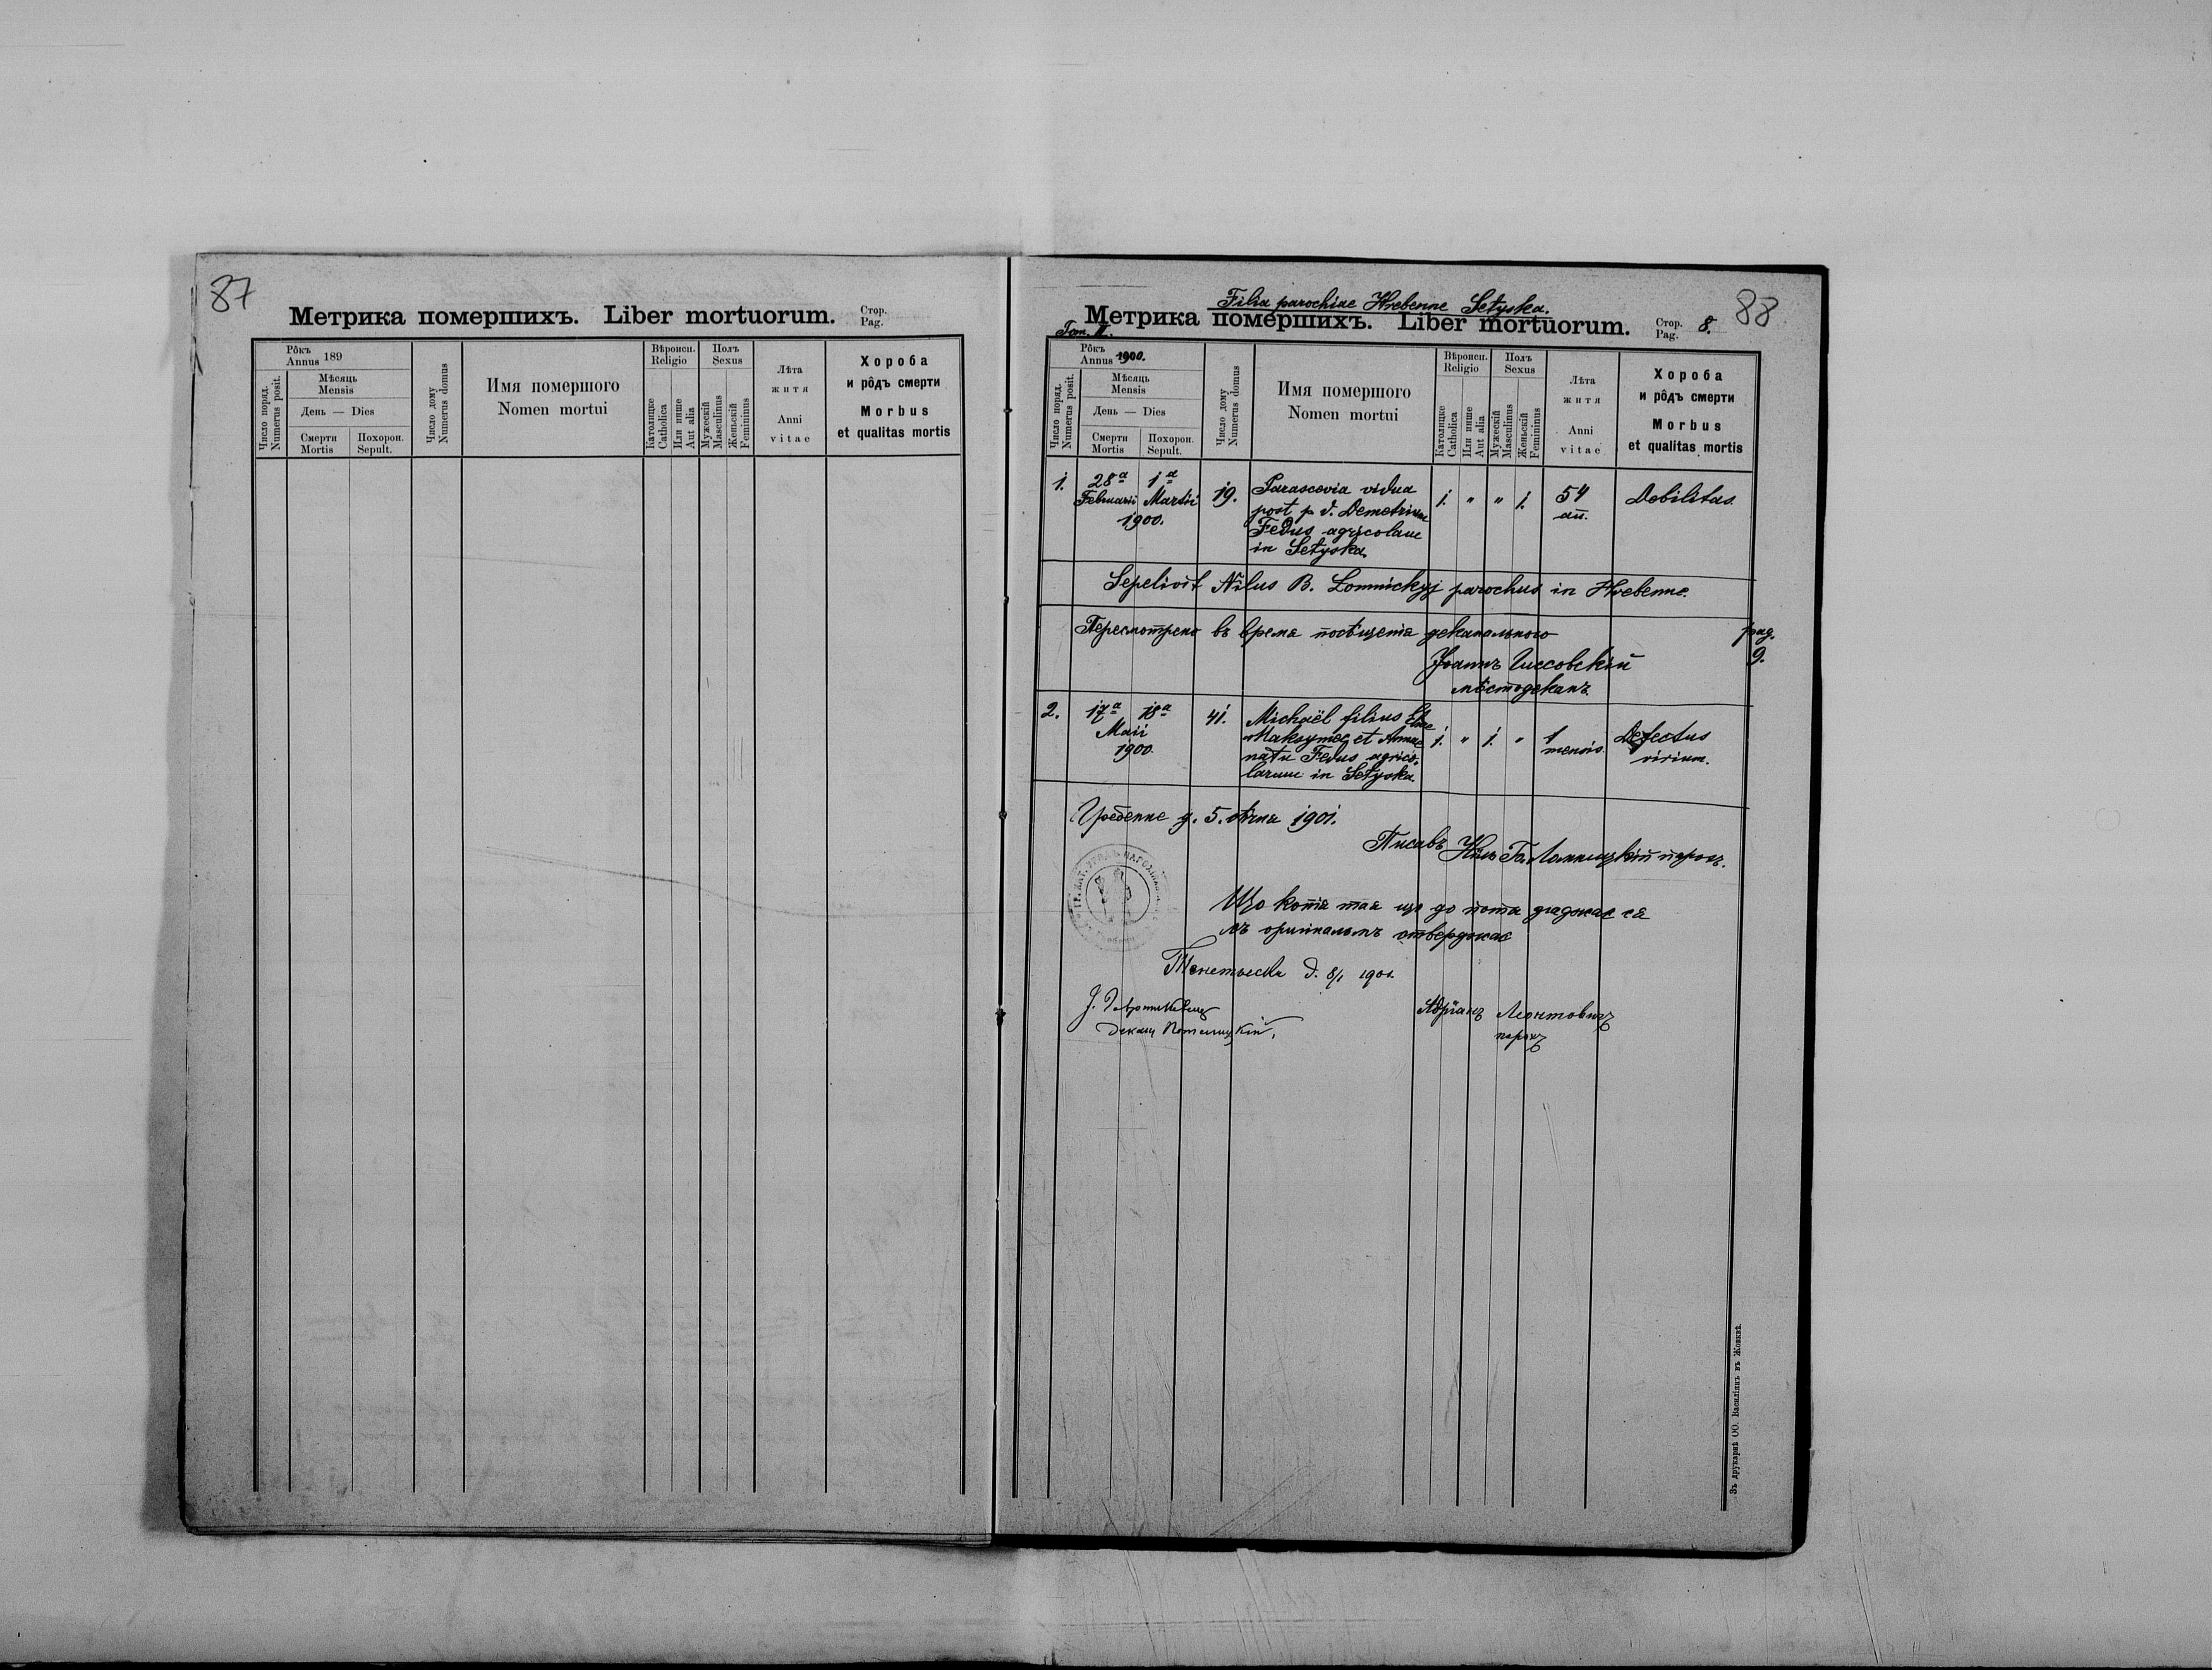 87
Метрика померших. Liber mortuorum.
Стор.
Pag.
Рôкъ
Annus 189
Мѣсяць
Mensis
День — Dies
Смерти
Mortis
Похорон.
Sepult.
Число поряд.
Numerus posit.
Число дому
Numerus domus
Имя помершого
Nomen mortui
Вѣроисп.
Religio
Католицке
Catholica
Или инше
Aut alia
Полъ
Sexus
Мужескій
Masculinus
Женьскій
Femininus
Лѣта
житя
Anni
vitae
Хороба
и рôдъ смерти
Morbus
et qualitas mortis
88
Filia parochiae Hrebenne Setyska.
Метрика помершихъ. Liber mortuorum.
Tom. II.
Стор.
Pag. 8.
Рôкъ
Annus 1900.
Мѣсяць
Mensis
День — Dies
Смерти
Mortis
Похорон.
Sepult.
Число поряд.
Numerus posit.
Число дому
Numerus domus
Имя помершого
Nomen mortui
Вѣроисп.
Religio
Католицке
Catholica
Или инше
Aut alia
Полъ
Sexus
Мужескій
Masculinus
Женьскій
Femininus
Лѣта
житя
Anni
vitae
Хороба
и рôдъ смерти
Morbus
et qualitas mortis
1. 28a 1a 19. Parascevia vidua 1. " " 1. 54 Debilitas.
Februarii Martii post p. d. Demetrium an.
1900. Fedus agricolam
in Setyska.
Sepelivit Nilus B. Lomnickyj parochus in Hrebenne.
Пересмотрено въ время посѣщенія деканального
pag.
9.
Іоаннъ
мѣстодеканъ.
2. 17a 18a 41. Michaël filius
Maii Maksymec et Annae 1. " 1. " 1 Defectus
1900. natu Fedus agrico- mensis. virium.
larum in Setyska.
Гребенне д. 5. сѣчня 1901.
Писавъ Нілъ Ломницкій парох.
Що копія тая що до йоты згаджає ся
съ оригіналомъ отверджає
д. 8/1 1901.
Адріанъ Леонтовичъ
парохъ
Декан Потелицкій.
Зъ друкарнѣ ОО. Василіянъ въ Жовквѣ.